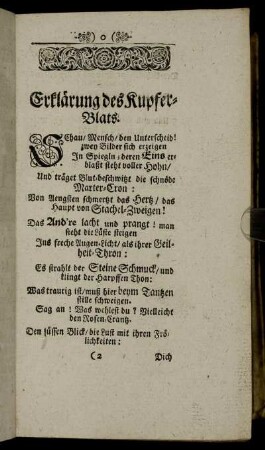 )o(
Erklärung des Kupfer-
Blats.
SChau / Mensch / den Unterscheid!
zwey Bilder sich erzeigen
In Spiegln / deren Eins er-
blasst steht voller Hohn /
Und träget Blut-beschwitzt die schnöde
Marter-Cron :
Von Aengsten schmertzt das Hertz / das
Haupt von Stachel-Zweigen!
Das And're lacht und prangt ! man
sieht die Lüste steigen
Ins freche Augen-Licht / als ihrer Geil-
heit-Thron :
Es strahlt der Steine Schmuck / und
klingt der Harpffen Thon:
Was traurig ist / muß hier beym Tantzen
stille schweigen.
Sag an ! Was wehlest du ? Vielleicht
den Rosen-Crantz.
Den süssen Blick / die Lust mit ihren Frö-
lichkeiten :
(2 Dich